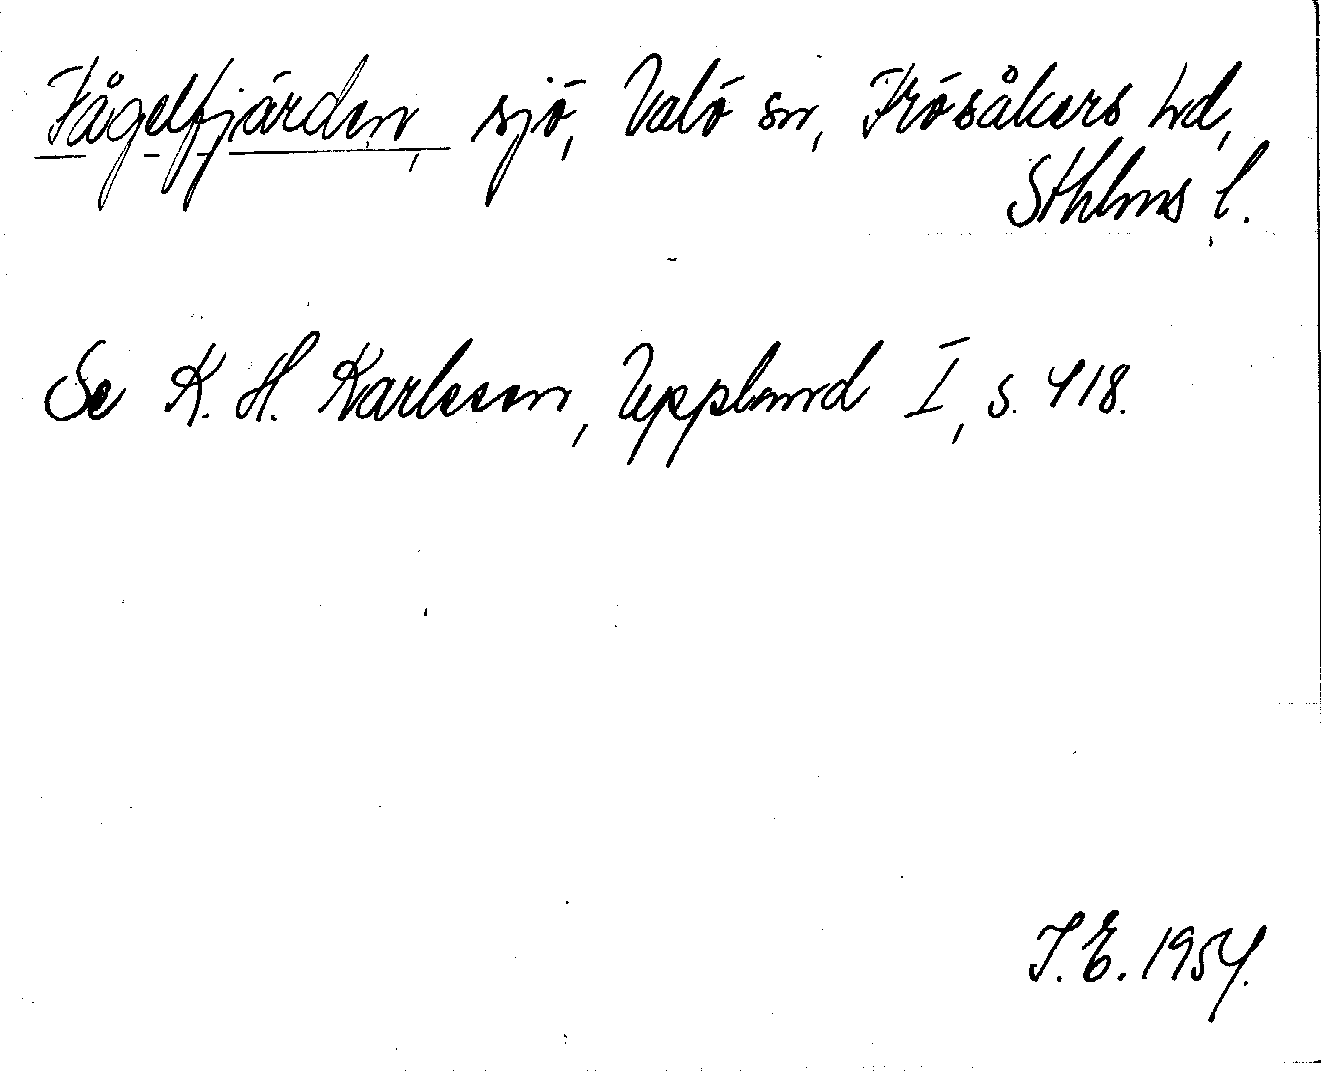 Fågelfjärden, sjö, Valö sn, Frösåkers hd,
Sthlms l.
Se K. H. Karlsson, Uppland I, s. 418.
I. E. 1954.